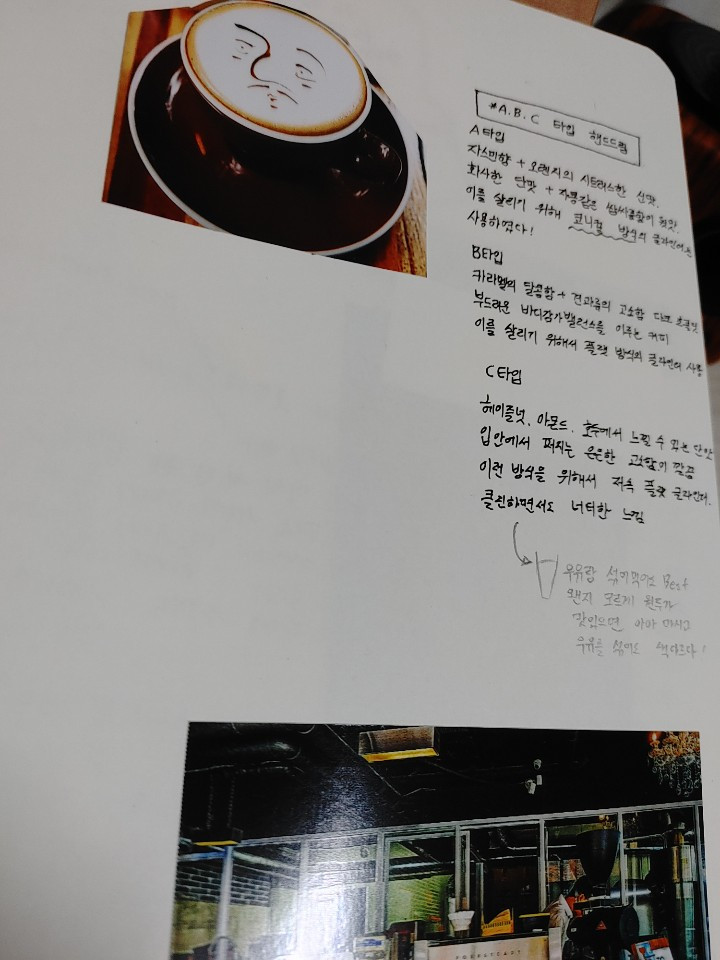 *A.B.C 타입 핸드드립
A타입
자스민향 + 오렌지의 시트러스한 신맛.
화사한 단맛 + 자몽같은 쌉싸름함이 뒷맛.
이를 살리기 위해 코니컬 방식의 글라인더를
사용하였다!
B타입
카라멜의 달콤함 + 견과류의 고소함 다크 초콜릿
부드러운 바디감가 밸런스를 이루는 커피
이를 살리기 위해서 플랫 방식의 글라인더 사용
C타입
헤이즐넛, 아몬드, 호두에서 느낄 수 있는 단맛
입안에서 퍼지는 은은한 고소함이 깔끔
이런 방식을 위해서 저속 플랫 글라인더.
클린하면서도 너티한 느낌
우유랑 섞어먹어도 Best
왠지 모르게 원두가
맛있으면 아아 마시고
우유를 섞어도 색다르다!